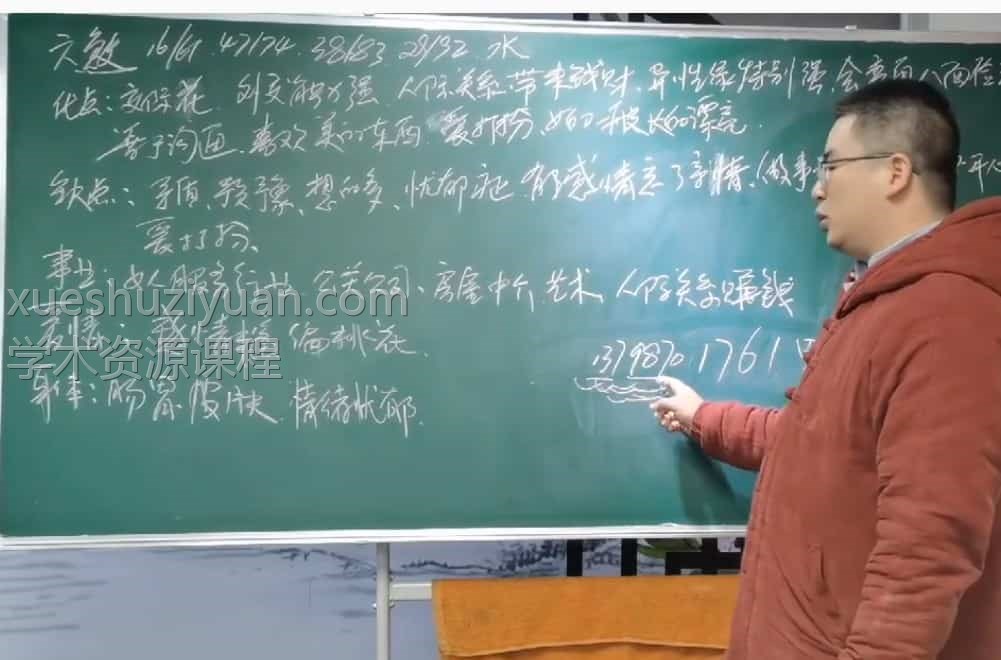 六煞 16/61 47/74 38/83 29/92 水
优点:交际花 外交能力强 人际关系带来钱财、异性缘特别强、会察
善于沟通、喜欢美的东西 爱打扮、 长的漂亮.
缺点:矛盾、犹豫、想的多、忧郁症 有感情忘了亲情、做事
爱打扮、
事业:女人服务行业 公关公司、房屋中介 艺术 人际关系赚钱
xueshuziyuan.com
感情: 感情丰富 偏桃花.
学术资源课程
身体:肠胃 皮肤 情绪忧郁.
1379870 1761